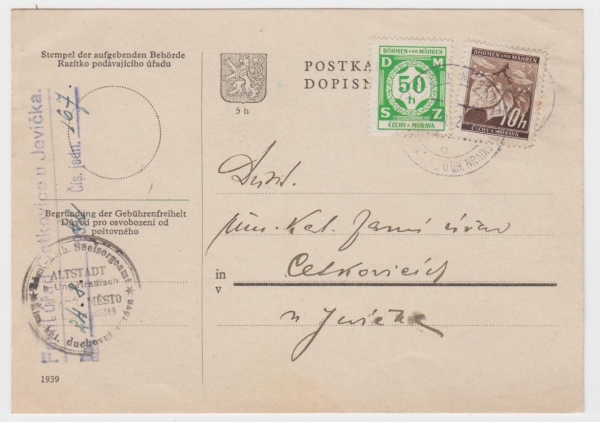 Stempel der aufgebenden Behörde
Razítko podávajícího úřadu
5 h
POSTKA
DOPISN
BÖHMEN UND MÄHREN
D M
50
h
S Z
ČECHY A MORAVA
BÖHMEN UND MÄHREN
10h
ČECHY A MORAVA
Cetkovice u Jevíčka.
Čís. jedn. 167
Begründung der Gebührenfreiheit
Důvod pro osvobození od
poštovného
Seelsorgeamt
ALTSTADT
Ung. Hradisch
MĚSTO
duchovní správa
Důst.
řím. kat. farní úřad
in
v
Cetkovicích
u Jevíčka
1939